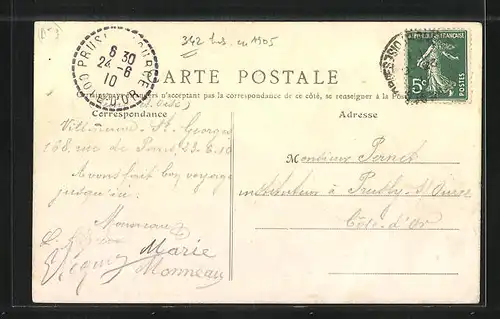 342 hab. en 1905
PRUSLY-S-OURCE
6 30
24-6
10
COTE-D'OR
REPUBLIQUE FRANÇAISE
5c
POSTES
CARTE POSTALE
n'acceptant pas la correspondance de ce côté, se renseigner à la Poste
Correspondance
Adresse
Villeneuve St. Georges
168, rue de Paris, 23-6-10
Avons fait bon voyage
jusqu'ici.
Monneau
Marie
Monneau
Monsieur Pernet
instituteur à Prusly s/ Ource
Côte-d'Or